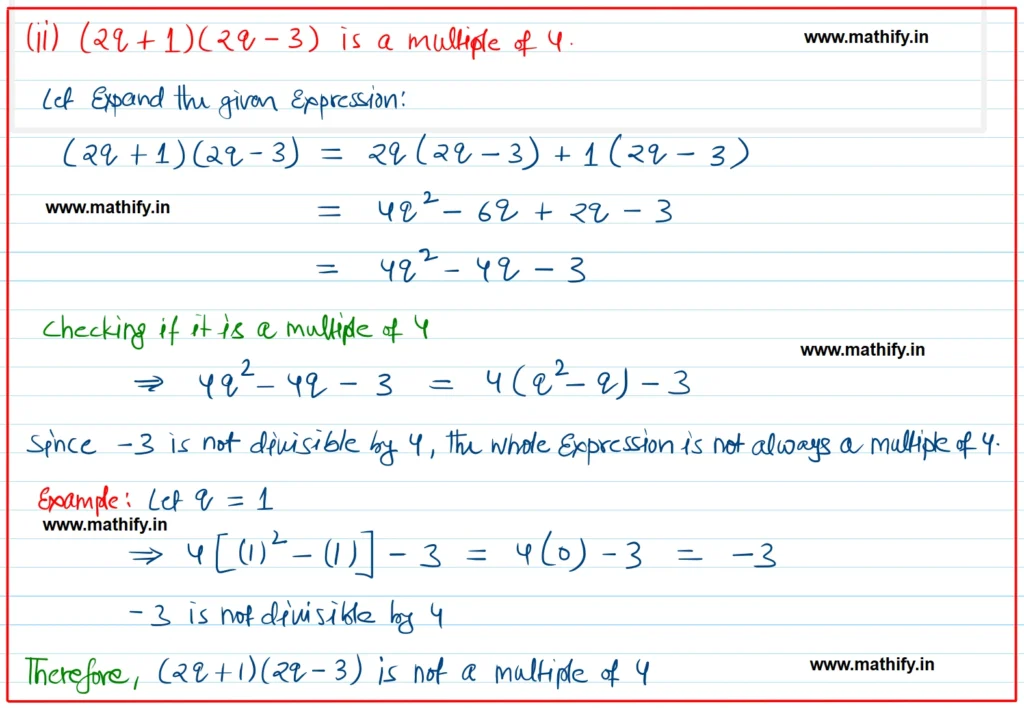 (ii) (2q + 1)(2q - 3) is a multiple of 4.
www.mathify.in
Let Expand the given Expression:
(2q + 1)(2q - 3) = 2q(2q - 3) + 1(2q - 3)
www.mathify.in
= 4q² - 6q + 2q - 3
= 4q² - 4q - 3
checking if it is a multiple of 4
www.mathify.in
⇒ 4q² - 4q - 3 = 4(q² - q) - 3
Since -3 is not divisible by 4, the whole Expression is not always a multiple of 4.
Example: Let q = 1
www.mathify.in
⇒ 4[(1)² - (1)] - 3 = 4(0) - 3 = -3
-3 is not divisible by 4
Therefore, (2q+1)(2q-3) is not a multiple of 4
www.mathify.in